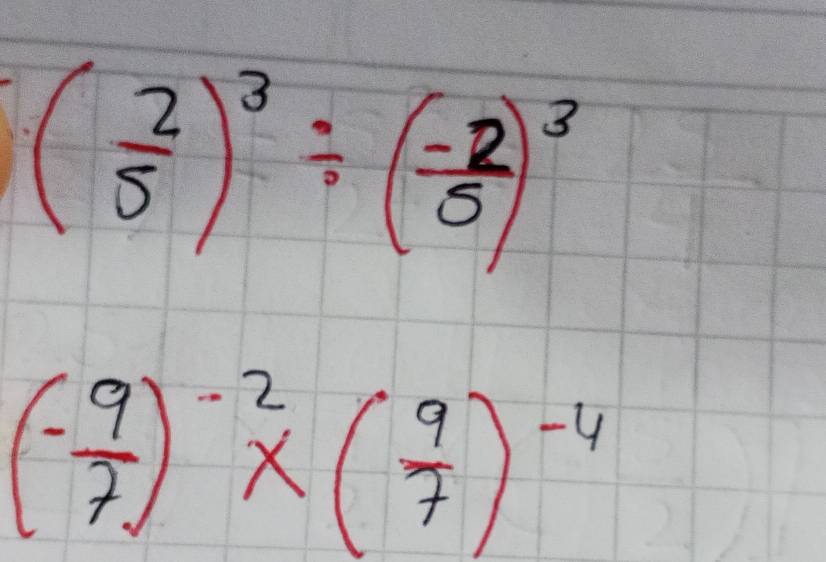 -(2/5)^3 ÷ (-2/5)^3
(-9/7)^-2 × (9/7)^-4